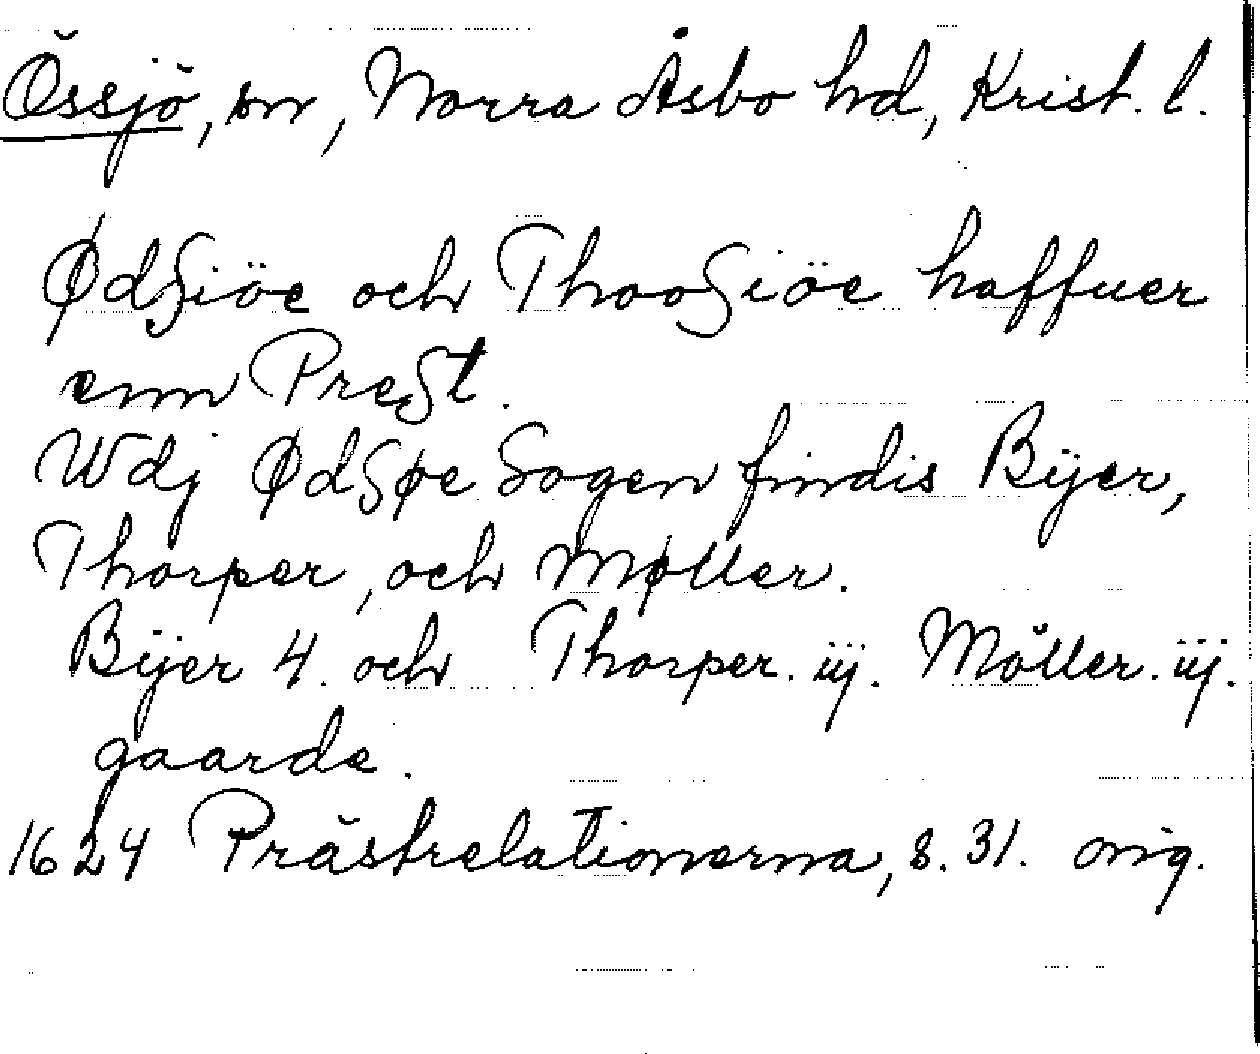 Össjö, sn, Norra Åsbo hd, Krist. l.
ØdSiöe och ThooSiöe haffuer
enn PreSt.
Wdj ØdSøe Sogen findis Bÿer,
Thorper, och Møller.
Bÿer 4. och Thorper. iij. Möller. iij.
gaarde.
1624 Prästrelationerna, s. 31. orig.